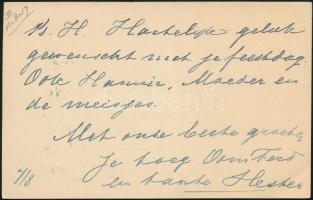 B. H. Hartelijk geluk
gewenscht met je feestdag.
Ook Hannie, Moeder en
de meisjes.
Met onze beste groeten
Je toeg Oom Ferd
en tante Hester
7/8